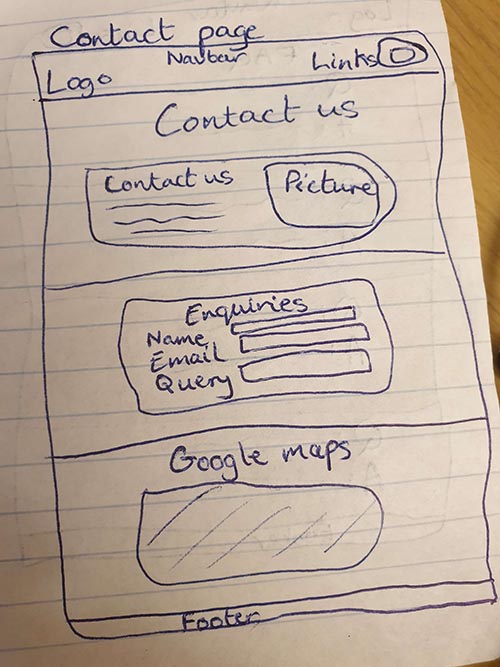 Contact page
Navbar
Logo
Links
Contact us
Contact us
Picture
Enquiries
Name
Email
Query
Google maps
Footer